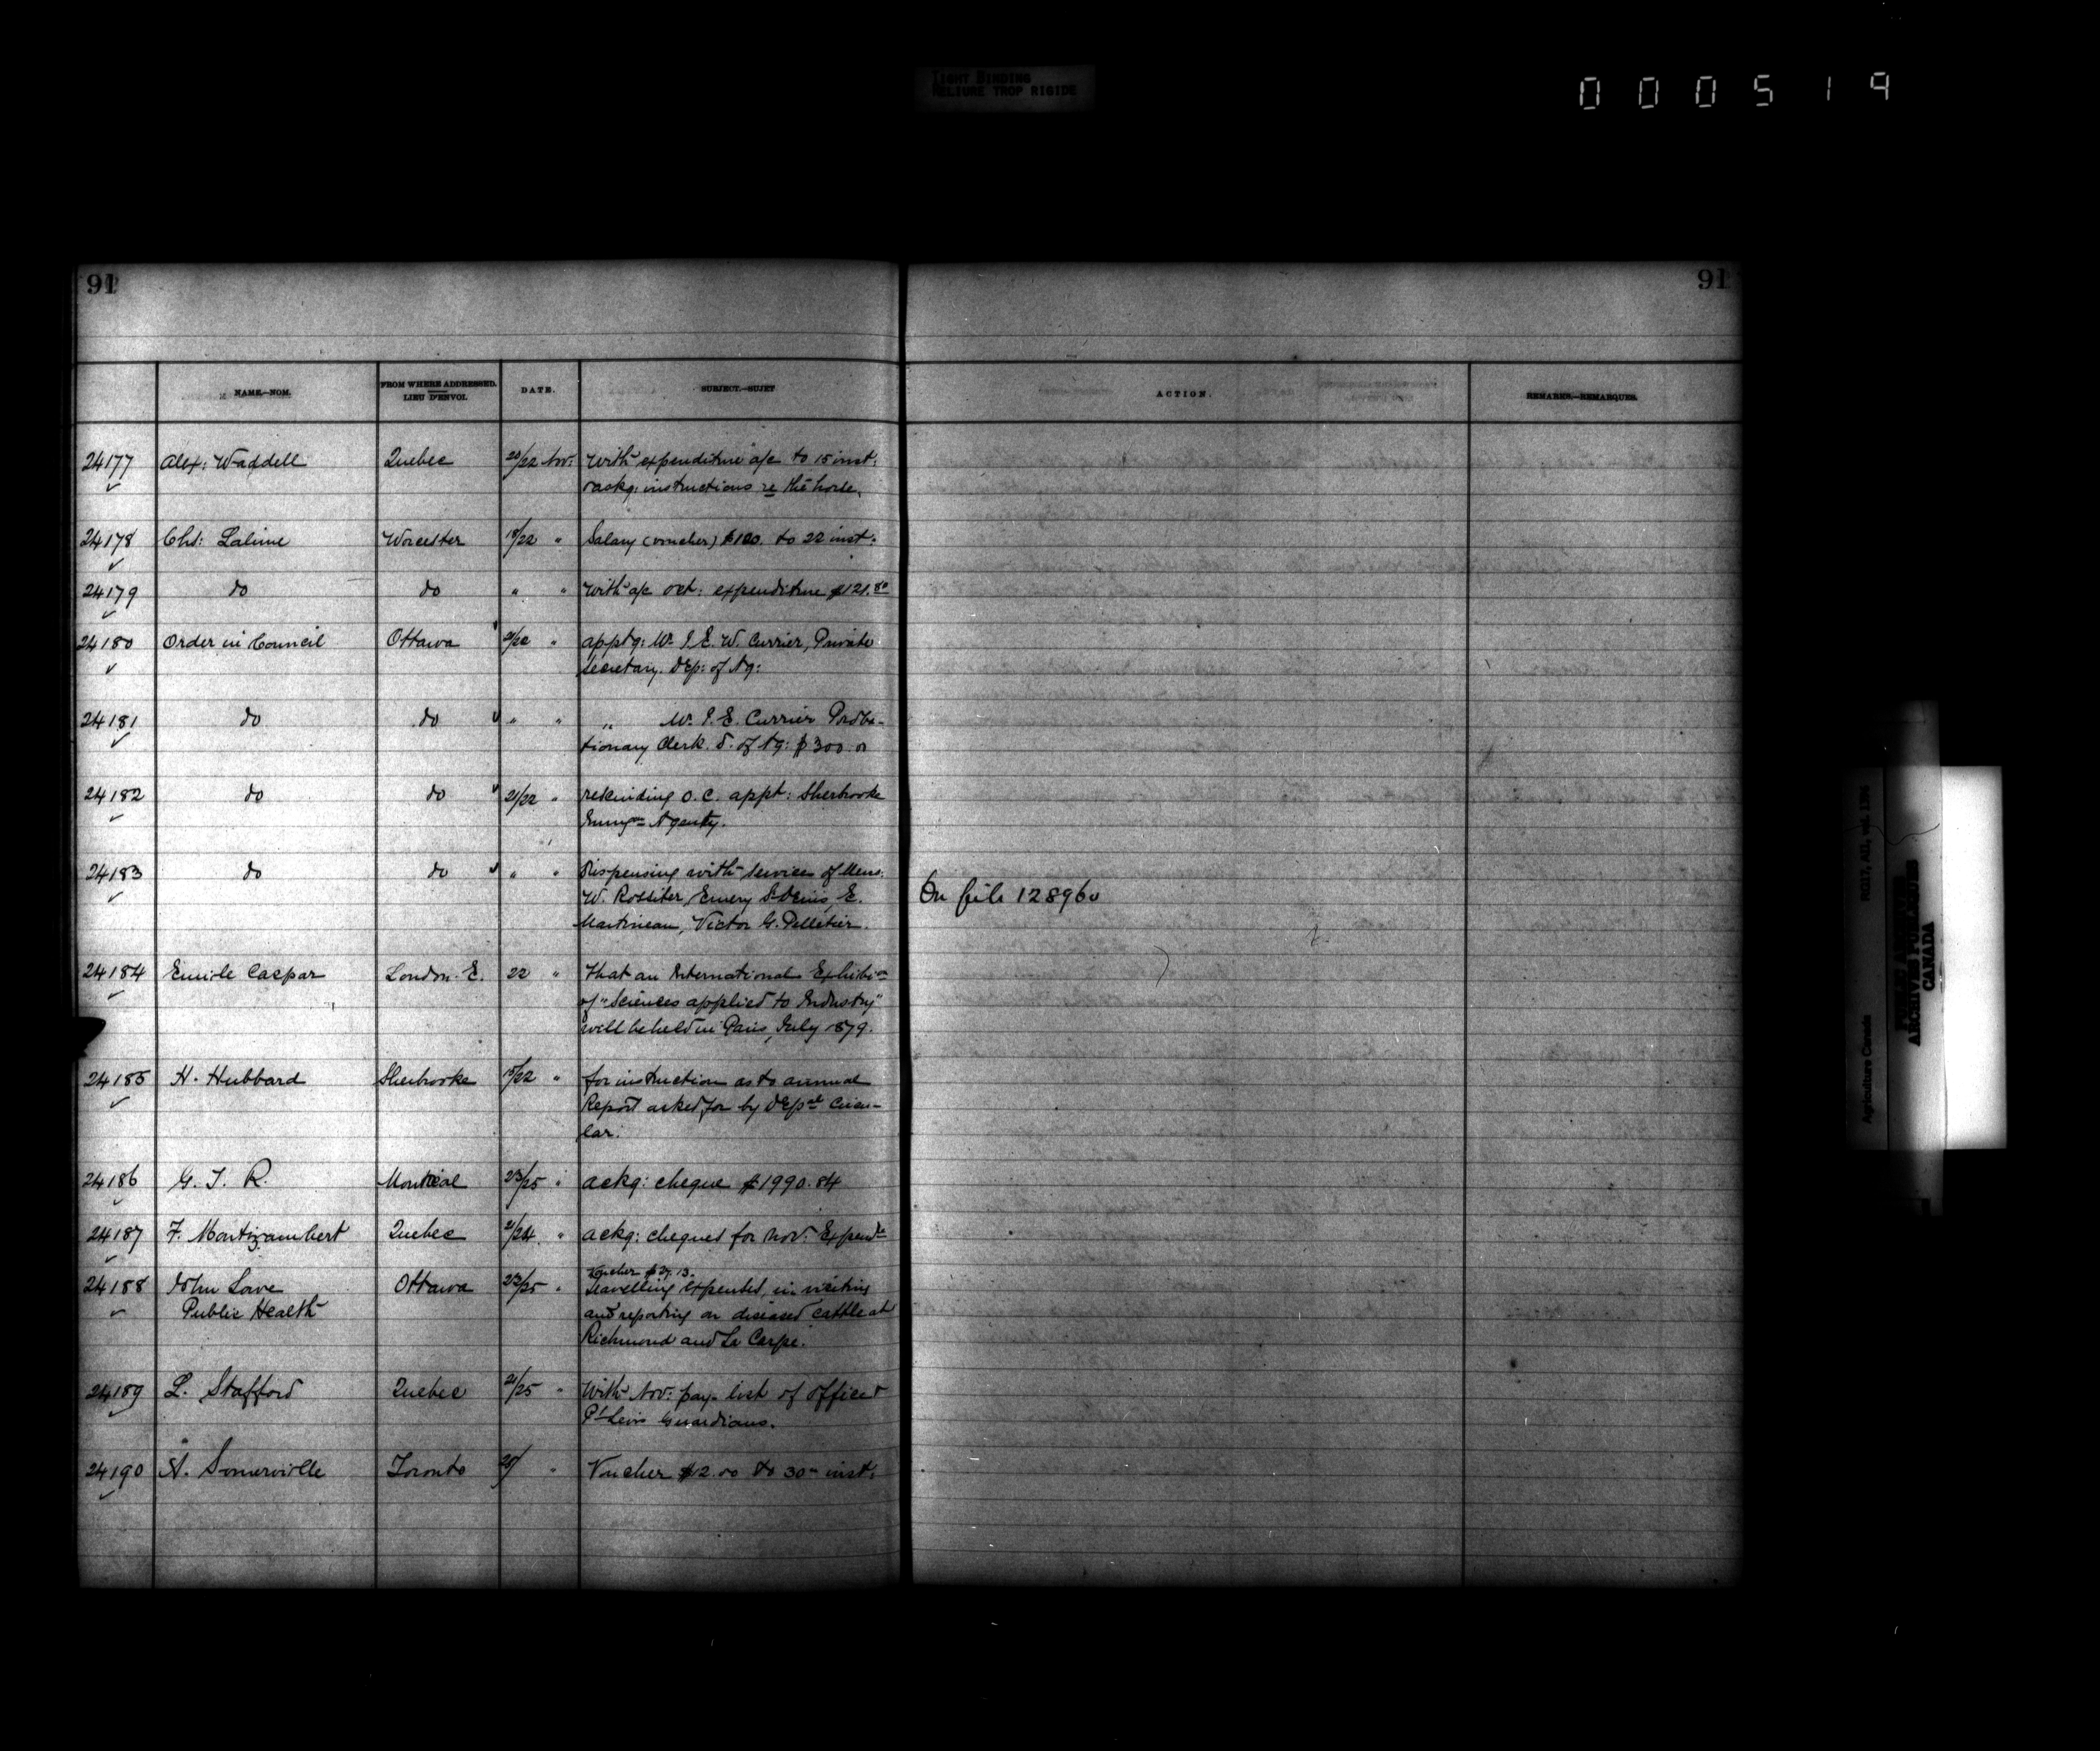 TIGHT BINDING
RELIURE TROP RIGIDE
000519
91
91
NAME.—NOM.
FROM WHERE ADDRESSED.
LIEU D'ENVOI.
DATE.
SUBJECT.—SUJET
ACTION.
REMARKS.—REMARQUES.
24177 Alex: Waddell Quebec 20/22 Nov: With expenditure a/c to 15 inst:
& ackg: instructions re the horse.
24178 Chs: Lalime Worcester 19/22 " Salary (voucher) $120. to 22 inst:
24179 do do " " With a/c Oct: expenditure $121.80
24180 Order in Council Ottawa 21/22 " apptg: Mr. J. E. W. Currier, Private
Secretary. Dep: of Ag:
24181 do do " " " Mr. J. E. Currier Proba-
tionary Clerk. D. of Ag: $300.00
24182 do do 21/22 " rescinding O.C. appt: Sherbrooke
Immgn Agency.
24183 do do " " Dispensing with services of Mess:
W. Rossiter, Emery St Denis, E.
Martineau, Victor G. Pelletier.
On file 128960
24184 Emile Caspar London. E. 22 " That an International Exhibion
of "Sciences applied to Industry"
will be held in Paris, July 1879.
24185 H. Hubbard Sherbrooke 15/22 " for instruction as to annual
Report asked for by Deptal Circu-
lar.
24186 G. T. R. Montreal 23/25 " ackg: cheque $1990.84
24187 F. Montizambert Quebec 21/24 " ackg: cheques for Nov: Expendre
24188 John Lowe Ottawa 23/25 " Voucher
Travelling expenses, in visiting
Public Health and reporting on diseased cattle at
Richmond and La Carpe.
24189 L. Stafford Quebec 21/25 " With Nov: pay-list of officer &
Pt Levis Guardians.
24190 A. Somerville Toronto " Voucher $2.00 to 30th inst:
Agriculture Canada RG17, AII, vol. 1396
PUBLIC ARCHIVES
ARCHIVES PUBLIQUES
CANADA